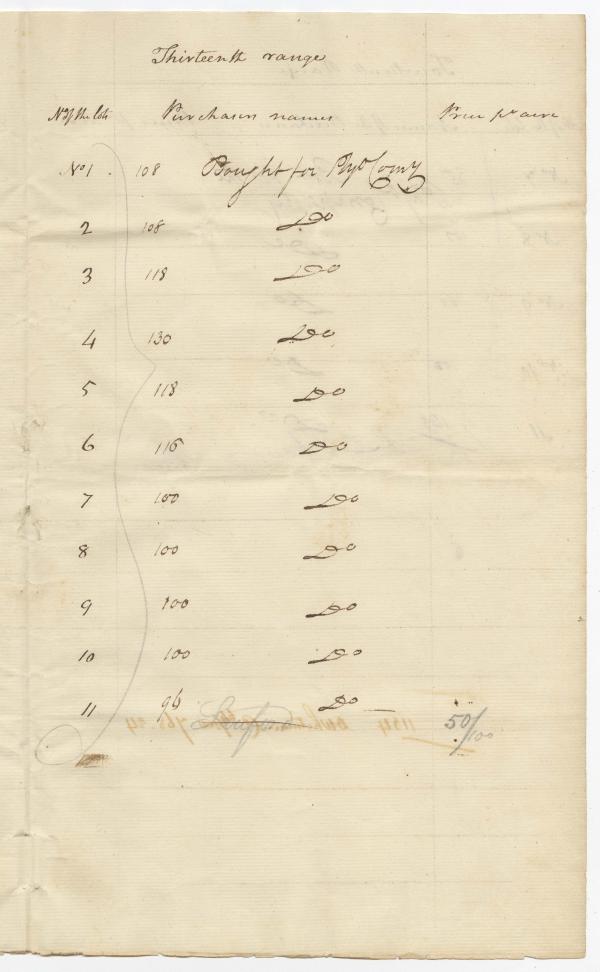 Thirteenth range
No of the lots Purchasers names Price pr acre
No 1 108 Bought for Plyo Comy
2 108 Do
3 118 Do
4 130 Do
5 118 Do
6 116 Do
7 100 Do
8 100 Do
9 100 Do
10 100 Do
11 96 Do
50/100